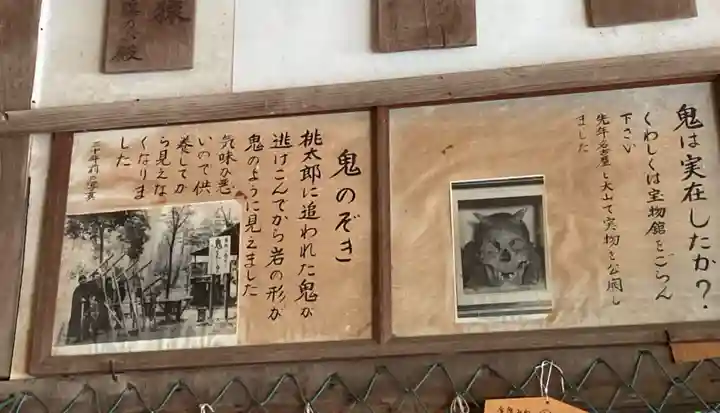 猿
殿
鬼は実在したか?
くわしくは宝物館をごらん
下さい
先年名古屋と犬山で実物を公開し
ました
鬼のぞき
桃太郎に追われた鬼が
逃げこんでから岩の形が
鬼のように見えました
気味が悪
いので供
養してか
ら見えな
くなりま
した
二十年前の写真